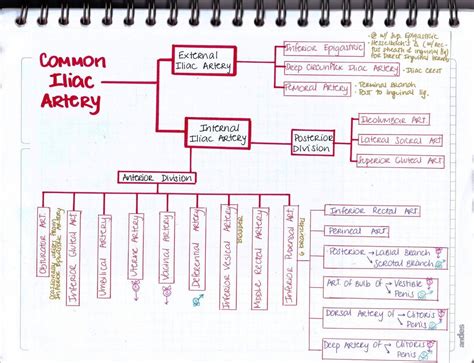 COMMON
ILIAC
ARTERY
EXTERNAL
ILIAC ARTERY
INFERIOR EPIGASTRIC
DEEP CIRCUMFLEX ILIAC ARTERY
- ILIAC CREST
FEMORAL ARTERY
- TERMINAL BRANCH
- POST TO INGUINAL lig.
INTERNAL
ILIAC ARTERY
POSTERIOR
DIVISION
ILEOLUMBAR ART.
LATERAL SACRAL ART.
SUPERIOR GLUTEAL ART.
ANTERIOR DIVISION
OBTURATOR ART.
INFERIOR GLUTEAL ART.
UMBILICAL ARTERY
UTERINE ARTERY
VAGINAL ARTERY
DEFERENTIAL ARTERY
INFERIOR VESICAL ARTERY
BLADDER
MIDDLE RECTAL ARTERY
INTERNAL PUDENDAL ART.
6 BRANCHES
INFERIOR RECTAL ART.
PERINEAL ART.
POSTERIOR
LABIAL BRANCH
SCROTAL BRANCH
ART OF BULB OF
VESTIBULE
PENIS
DORSAL ARTERY OF
CLITORIS
PENIS
DEEP ARTERY OF
CLITORIS
PENIS
andes